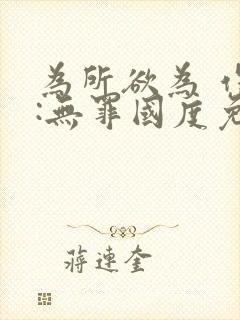 為所欲為
:無罪國度
蔣連奎